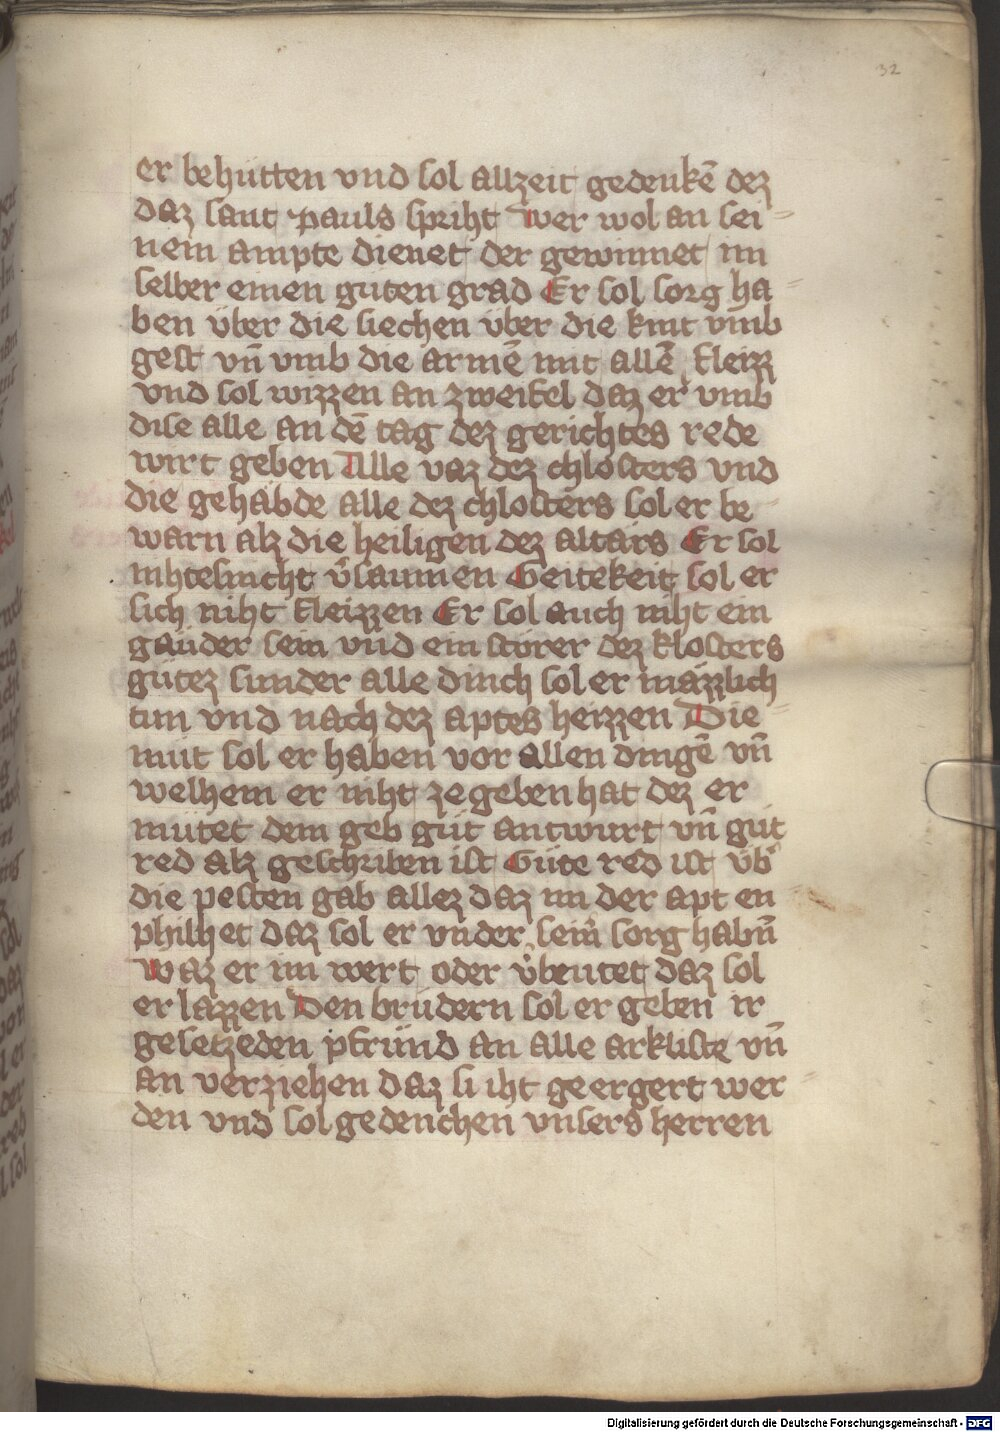 32
er behutten vnd sol allzeit gedenkē dez
daz sant Pauls spriht Wer wol an sei-
nem ampte dienet der gewinnet im
selber einen guten grad Er sol sorg ha-
ben über die siechen über die kint vmb
gest vn̄ vmb die armē mit allē fleizz
vnd sol wizzen an zweifel daz er vmb
dise alle an dē tag dez gerichtes rede
wirt geben Alle vaz dez chlosters vnd
die gehabde alle dez chlosters sol er be-
warn alz die heiligen dez altars Er sol
nihtesnicht v̄saumen Geitekeit sol er
sich niht fleizzen Er sol auch niht ein
gäuder sein vnd ein störer dez klosters
gütez sunder alle dinch sol er mäzzlich
tun vnd nach dez aptes heizzen Die-
mut sol er haben vor allen dingē vn̄
welhem er niht ze geben hat dez er
mütet dem geb güt antwurt vn̄ güt
red alz geschriben ist Güte red ist üb̄
die pesten gab allez daz im der apt en
philhet daz sol er vnder seim̄ sorg habn̄
Waz er im wert oder v̄beutet daz sol
er lazzen Den brüdern sol er geben ir
gesetzeden pfründ an alle arkliste vn̄
an verziehen daz si iht geergert wer-
den vnd sol gedenchen vnsers herren
Digitalisierung gefördert durch die Deutsche Forschungsgemeinschaft - DFG